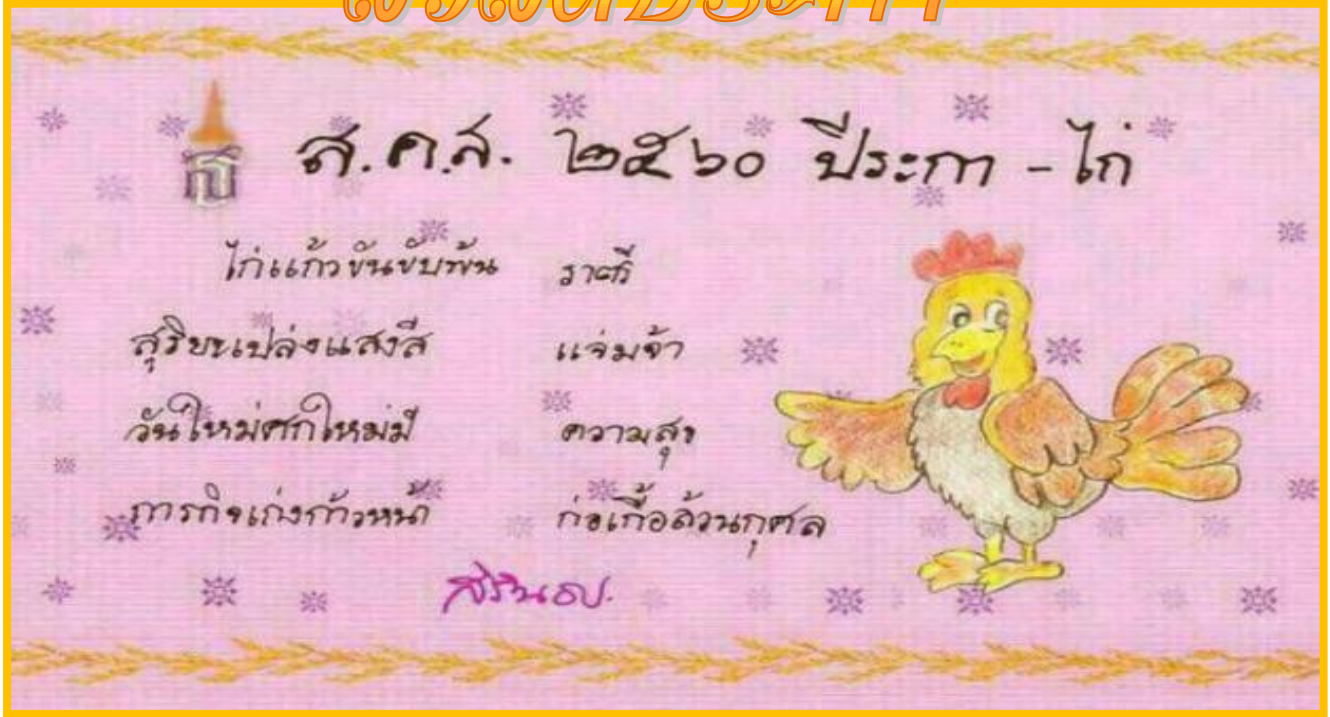 ส.ค.ส. ๒๕๖๐ ปีระกา - ไก่
ไก่แก้วขันขับพ้น ราตรี
สุริยนเปล่งแสงสี แจ่มจ้า
วันใหม่ศกใหม่มี ความสุข
ภารกิจเก่งก้าวหน้า ก่อเกื้อล้วนกุศล
สิรินธร.